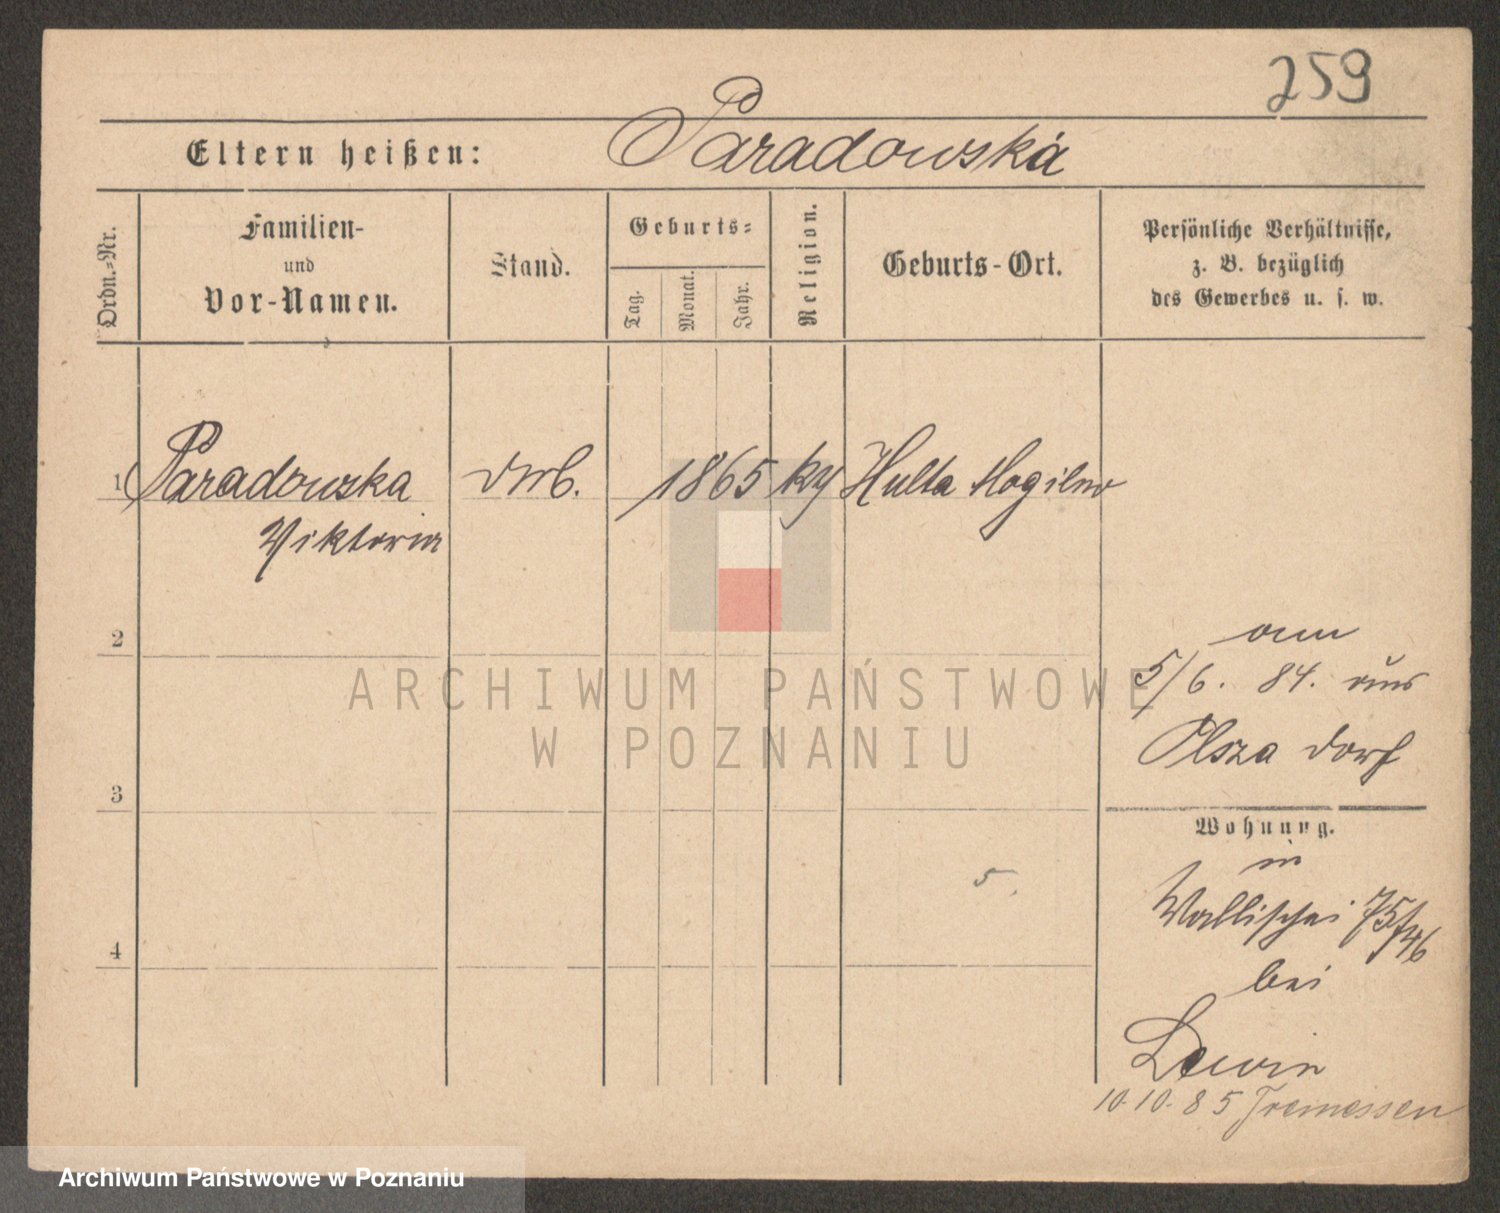 259
Eltern heißen: Paradowska
Ordn.-Nr.
Familien-
und
Vor-Namen.
Stand.
Geburts-
Tag.
Monat.
Jahr.
Religion.
Geburts-Ort.
Persönliche Verhältnisse,
z. B. bezüglich
des Gewerbes u. s. w.
1 Paradowska 1865 Hulta Mogilno
Viktoria
2
5/6. 84. aus
Olsza Dorf
3
Wohnung.
in
Wallischei 75/76
4
bei
Lewin
10.10.85 Tremessen
5
ARCHIWUM PAŃSTWOWE
W POZNANIU
Archiwum Państwowe w Poznaniu